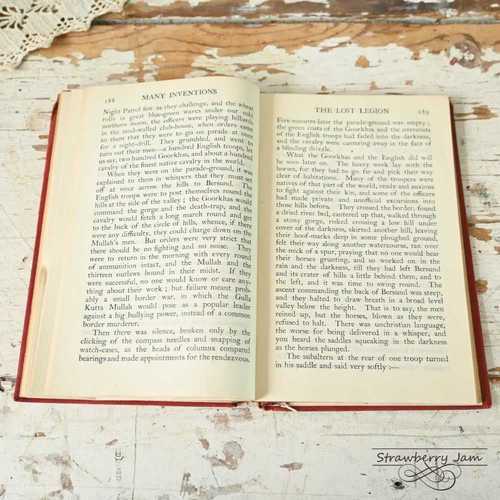 188
MANY INVENTIONS
Night Patrol fire as they challenge, and the wheat
rolls in great blue-green waves under our cold
northern moon, the officers were playing billiards
in the mud-walled club-house, when orders came
to them that they were to go on parade at once
for a night-drill. They grumbled, and went to
turn out their men—a hundred English troops, let
us say, two hundred Goorkhas, and about a hundred
cavalry of the finest native cavalry in the world.
When they were on the parade-ground, it was
explained to them in whispers that they must set
off at once across the hills to Bersund. The
English troops were to post themselves round the
hills at the side of the valley; the Goorkhas would
command the gorge and the death-trap, and the
cavalry would fetch a long march round and get
to the back of the circle of hills, whence, if there
were any difficulty, they could charge down on the
Mullah's men. But orders were very strict that
there should be no fighting and no noise. They
were to return in the morning with every round
of ammunition intact, and the Mullah and the
thirteen outlaws bound in their midst. If they
were successful, no one would know or care any-
thing about their work; but failure meant prob-
ably a small border war, in which the Gulla
Kutta Mullah would pose as a popular leader
against a big bullying power, instead of a common
border murderer.
Then there was silence, broken only by the
clicking of the compass needles and snapping of
watch-cases, as the heads of columns compared
bearings and made appointments for the rendezvous.
THE LOST LEGION
189
Five minutes later the parade-ground was empty;
the green coats of the Goorkhas and the overcoats
of the English troops had faded into the darkness,
and the cavalry were cantering away in the face of
a blinding drizzle.
What the Goorkhas and the English did will
be seen later on. The heavy work lay with the
horses, for they had to go far and pick their way
clear of habitations. Many of the troopers were
natives of that part of the world, ready and anxious
to fight against their kin, and some of the officers
had made private and unofficial excursions into
those hills before. They crossed the border, found
a dried river bed, cantered up that, walked through
a stony gorge, risked crossing a low hill under
cover of the darkness, skirted another hill, leaving
their hoof-marks deep in some ploughed ground,
felt their way along another watercourse, ran over
the neck of a spur, praying that no one would hear
their horses grunting, and so worked on in the
rain and the darkness, till they had left Bersund
and its crater of hills a little behind them, and to
the left, and it was time to swing round. The
ascent commanding the back of Bersund was steep,
and they halted to draw breath in a broad level
valley below the height. That is to say, the men
reined up, but the horses, blown as they were,
refused to halt. There was unchristian language,
the worse for being delivered in a whisper, and
you heard the saddles squeaking in the darkness
as the horses plunged.
The subaltern at the rear of one troop turned
in his saddle and said very softly:—
Strawberry Jam